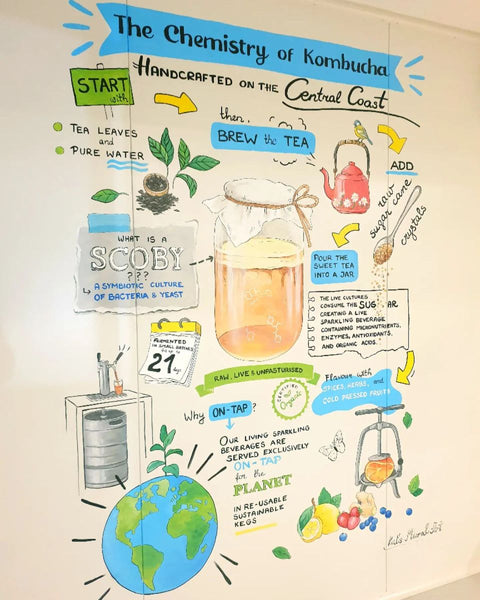 The Chemistry of Kombucha
HANDCRAFTED ON THE Central Coast
START
with
TEA LEAVES
and
PURE WATER
then,
BREW the TEA
ADD
raw
sugar cane
crystals
WHAT IS A
SCOBY
???
A SYMBIOTIC CULTURE
OF BACTERIA & YEAST
POUR THE
SWEET TEA
INTO A JAR
THE LIVE CULTURES
CONSUME THE SUGAR
CREATING A LIVE
SPARKLING BEVERAGE
CONTAINING MICRONUTRIENTS,
ENZYMES, ANTIOXIDANTS,
AND ORGANIC ACIDS.
FERMENTED
IN SMALL BATCHES
21
days
RAW, LIVE & UNPASTURISED
CERTIFIED
Organic
Flavour with
SPICES, HERBS, and
COLD PRESSED FRUITS
Why ON-TAP?
OUR LIVING SPARKLING
BEVERAGES ARE
SERVED EXCLUSIVELY
ON-TAP
for the
PLANET
IN RE-USABLE
SUSTAINABLE
KEGS